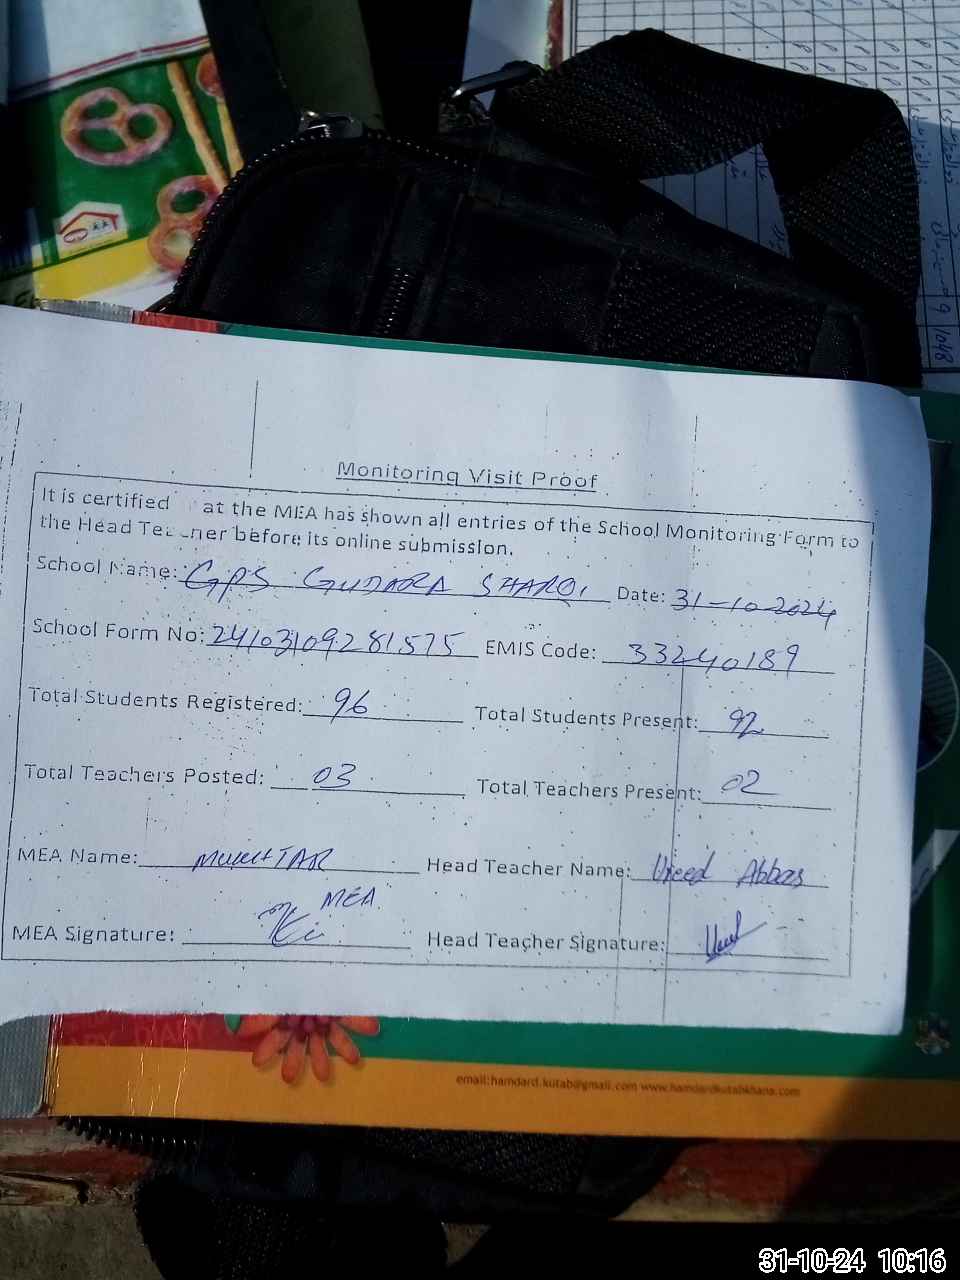 Monitoring Visit Proof
It is certified at the MEA has shown all entries of the School Monitoring Form to
the Head Teacher before its online submission.
School Name: GPS GUDARA SHARQI Date: 31-10-2024
School Form No: 24103109281575 EMIS Code: 33240189
Total Students Registered: 96 Total Students Present: 92
Total Teachers Posted: 03 Total Teachers Present: 02
MEA Name: MUKHTAR Head Teacher Name: Abbas
MEA
MEA Signature: Head Teacher Signature:
DIARY
email:hamdard.kutab@gmail.com www.hamdardkutabkhana.com
31-10-24 10:16